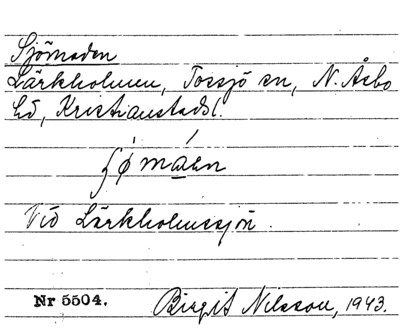 Sjömaden
Lärkholmen, Tossjö sn, N. Åsbo
hd, Kristianstads l.
ʃǿmáen
Vid Lärkholmssjön.
Nr 5504. Birgit Nilsson, 1943.